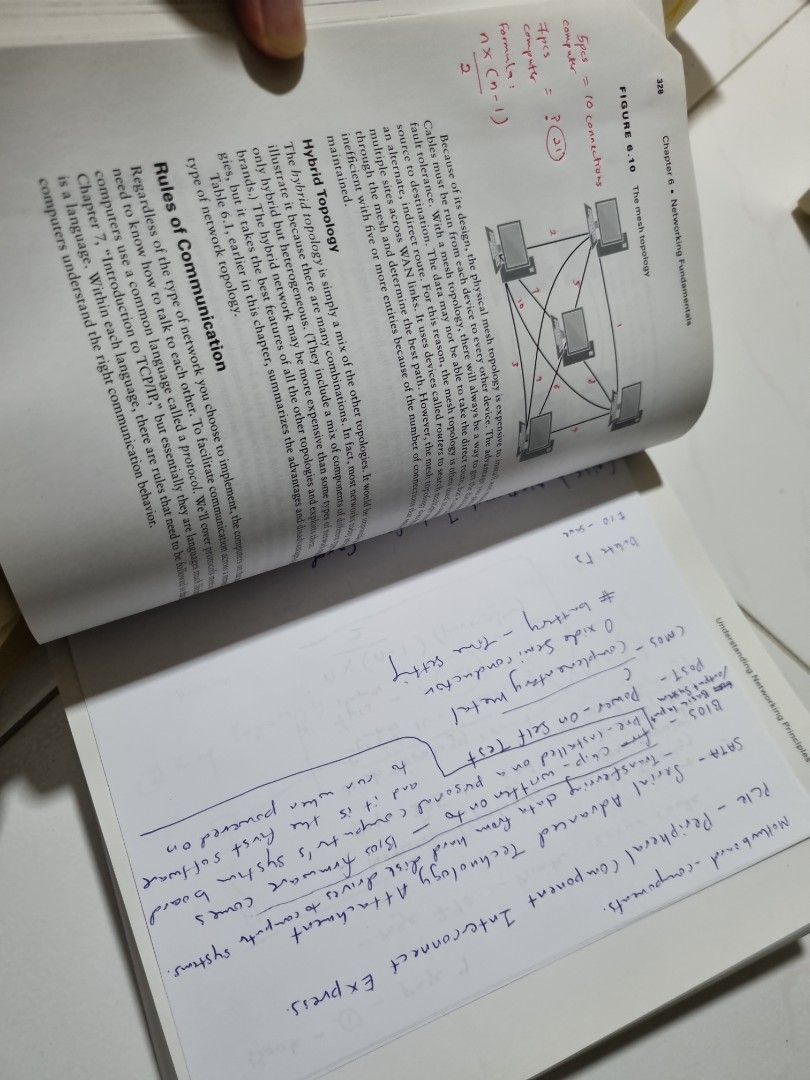 328 Chapter 6 • Networking Fundamentals
FIGURE 6.10 The mesh topology
5pcs = 10 connections
computer
7pcs = ? (21)
computer
formula:
n x (n - 1)
2
1
2
3
Because of its design, the physical mesh topology is expensive to
Cables must be run from each device to every other device. The
fault tolerance. With a mesh topology, there will always be a way to get
source to destination. The data may not be able to take the direct
an alternate, indirect route. For this reason, the mesh topology is often
multiple sites across WAN links. It uses devices called routers to search
through the mesh and determine the best path. However, the mesh topology
inefficient with five or more entities because of the number of connections
maintained.
Hybrid Topology
The hybrid topology is simply a mix of the other topologies. It would be
illustrate it because there are many combinations. In fact, most networks
only hybrid but heterogeneous. (They include a mix of components of
brands.) The hybrid network may be more expensive than some types of
gies, but it takes the best features of all the other topologies and exploits them.
Table 6.1, earlier in this chapter, summarizes the advantages and
type of network topology.
Rules of Communication
Regardless of the type of network you choose to implement, the computers
need to know how to talk to each other. To facilitate communication across a
computers use a common language called a protocol. We'll cover protocols
Chapter 7, "Introduction to TCP/IP," but essentially they are languages
is a language. Within each language, there are rules that need to be followed
computers understand the right communication behavior.
Understanding Networking Principles
Motherboard - components.
PCIe - Peripheral Component Interconnect Express.
SATA - Serial Advanced Technology Attachment
- Transferring data from hard disk drives to computer systems.
BIOS - Basic Input
/output System
chip - written on to - BIOS firmware comes
Pre-installed on a personal computer's system board
and it is the first software
to run when powered on
POST - Power-On Self Test
CMOS - Complementary Metal
Oxide Semiconductor
# battery - time setting
F10 - save